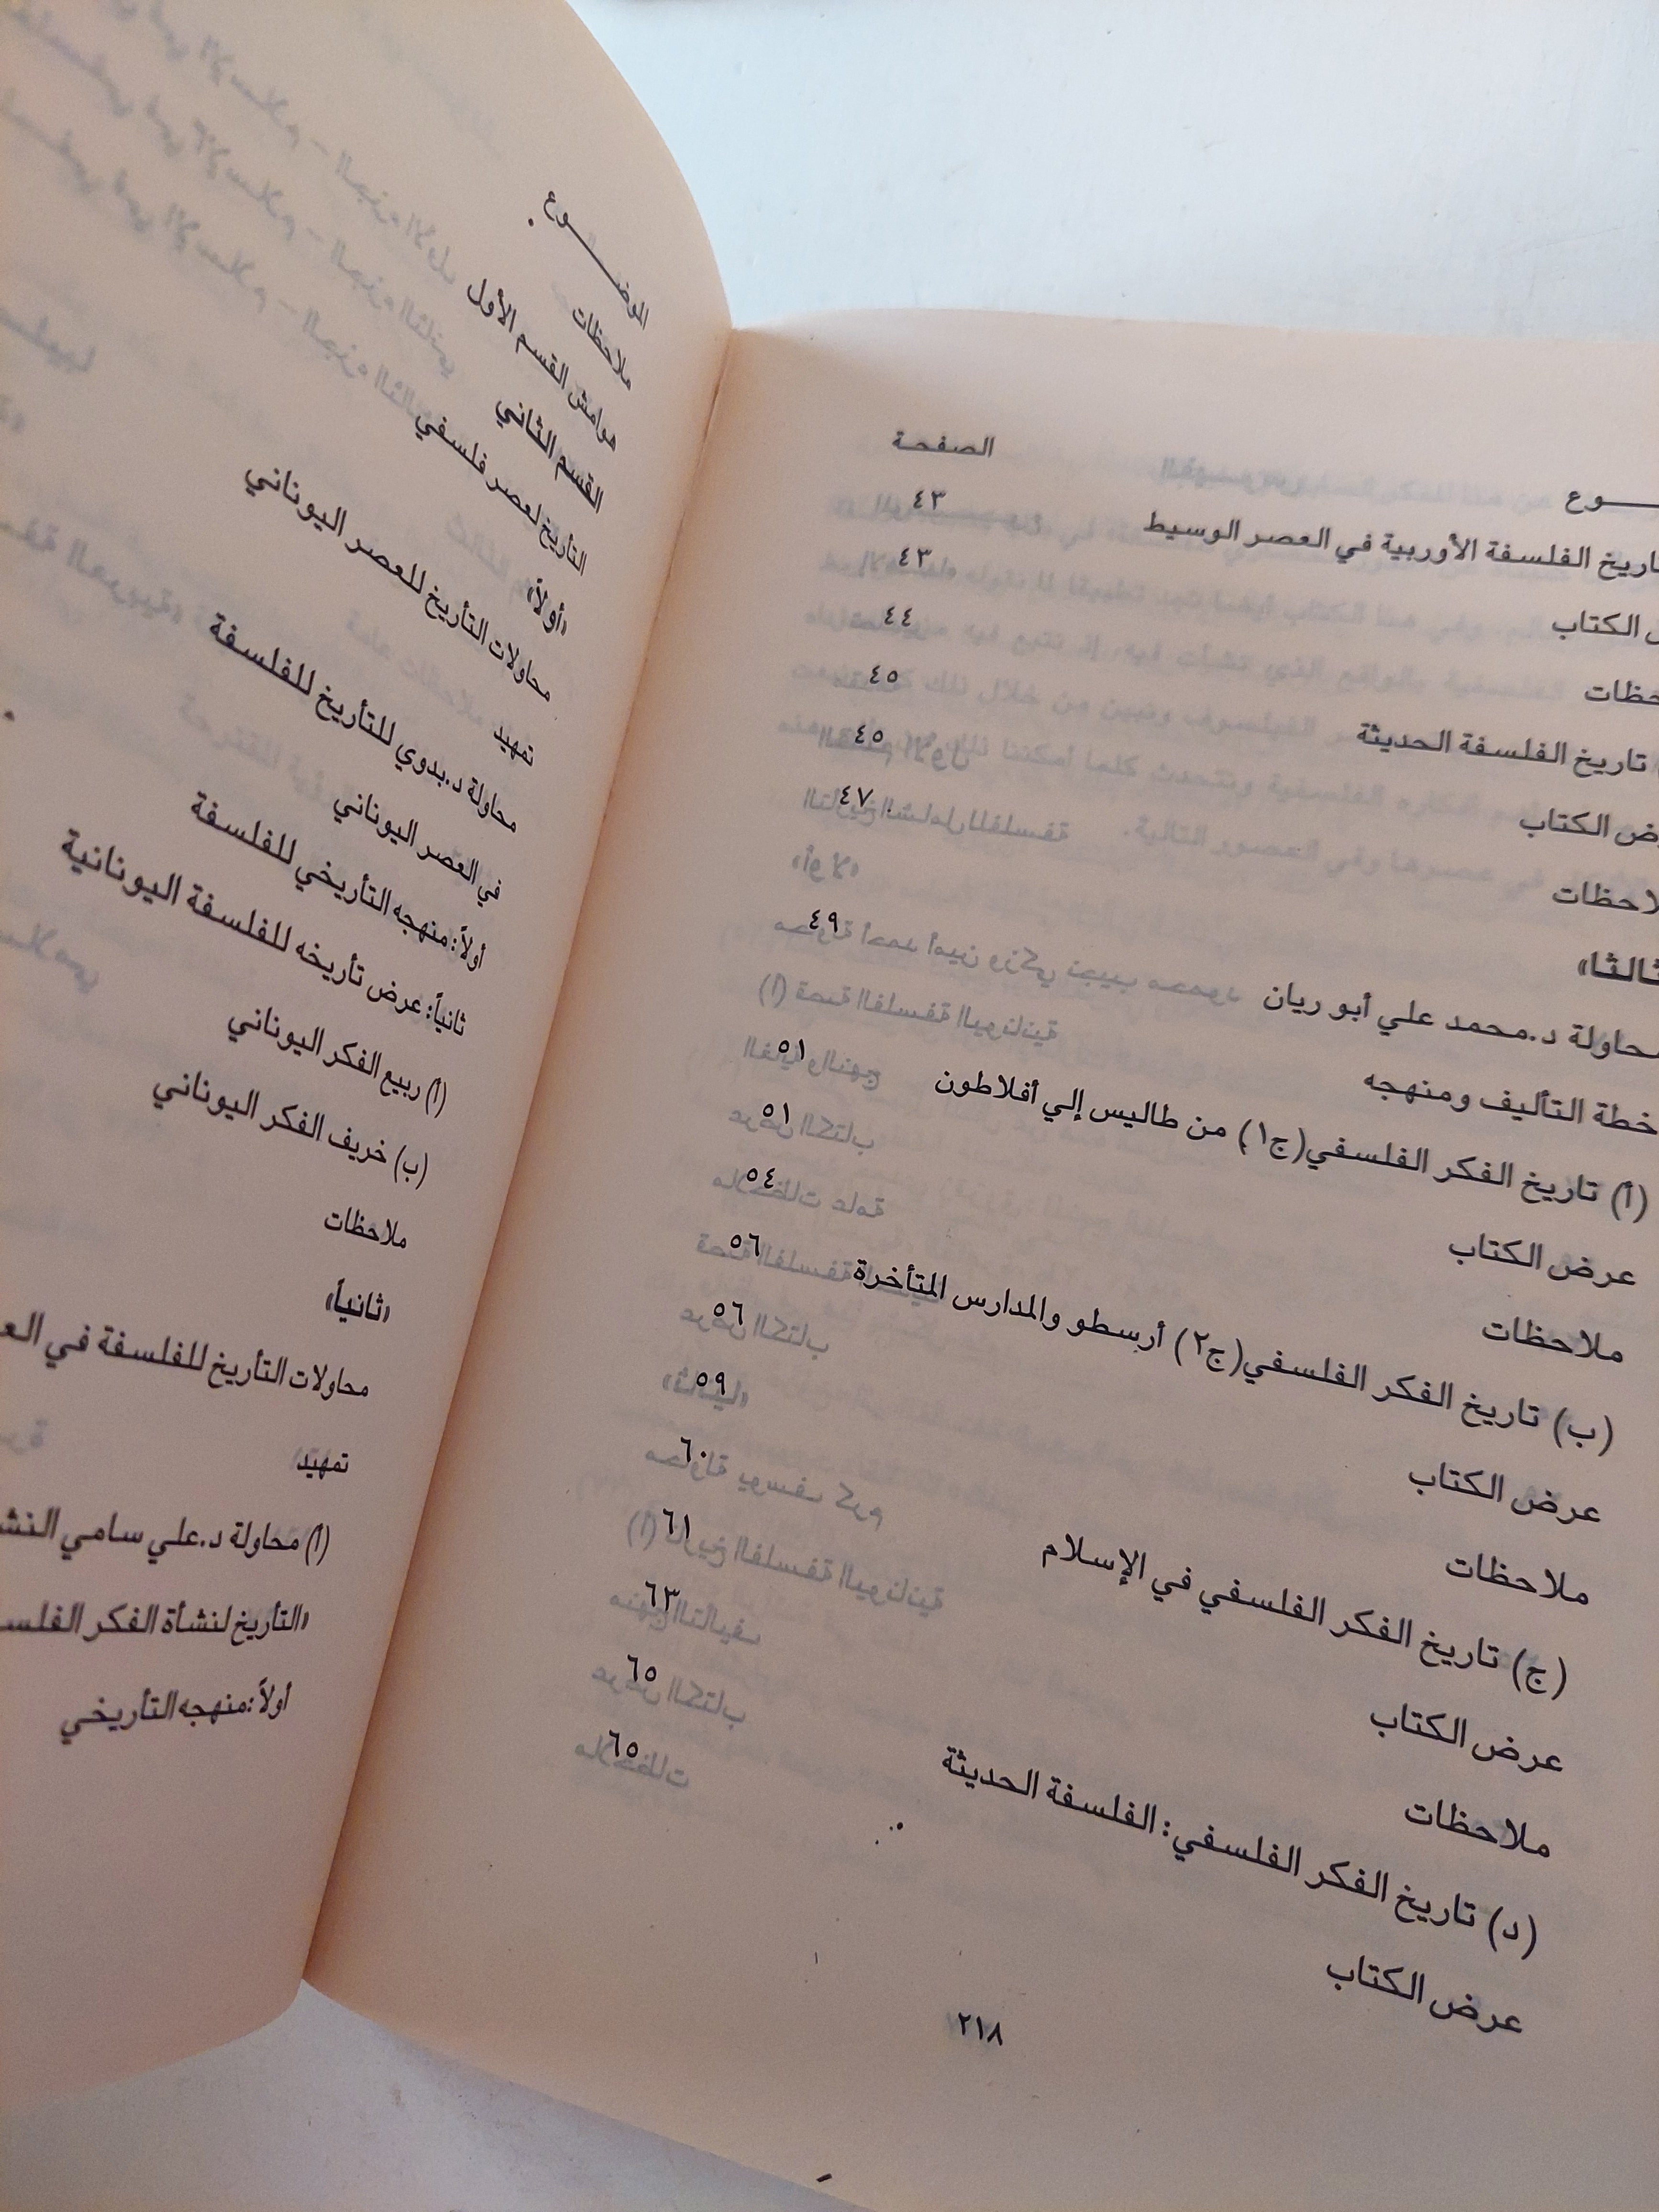 ـوع
الصفحة
تاريخ الفلسفة الأوربية في العصر الوسيط
٤٣
الكتاب
٤٣
حظات
٤٤
تاريخ الفلسفة الحديثة
٤٥
ض الكتاب
٤٥
لاحظات
٤٧
ثالثا»
محاولة د.محمد علي أبو ريان
٤٩
خطة التأليف ومنهجه
(أ) تاريخ الفكر الفلسفي(ج١) من طاليس إلي أفلاطون
٥١
عرض الكتاب
٥١
ملاحظات
٥٤
(ب) تاريخ الفكر الفلسفي(ج٢) أرسطو والمدارس المتأخرة
٥٦
عرض الكتاب
٥٦
ملاحظات
٥٩
(ج) تاريخ الفكر الفلسفي في الإسلام
٦٠
عرض الكتاب
٦١
ملاحظات
٦٣
(د) تاريخ الفكر الفلسفي: الفلسفة الحديثة
٦٥
عرض الكتاب
٦٥
٢١٨
الموضـــوع
ملاحظات
هوامش القسم الأول
القسم الثاني
التأريخ لعصر فلسفي
«أولاً»
محاولات التأريخ للعصر اليوناني
تمهيد
محاولة د.بدوي للتأريخ للفلسفة
في العصر اليوناني
أولاً: منهجه التأريخي للفلسفة
ثانياً: عرض تأريخه للفلسفة اليونانية
(أ) ربيع الفكر اليوناني
(ب) خريف الفكر اليوناني
ملاحظات
«ثانياً»
محاولات التأريخ للفلسفة في
تمهيد
(أ) محاولة د.علي سامي
«التأريخ لنشأة الفكر
أولاً:منهجه التأريخي